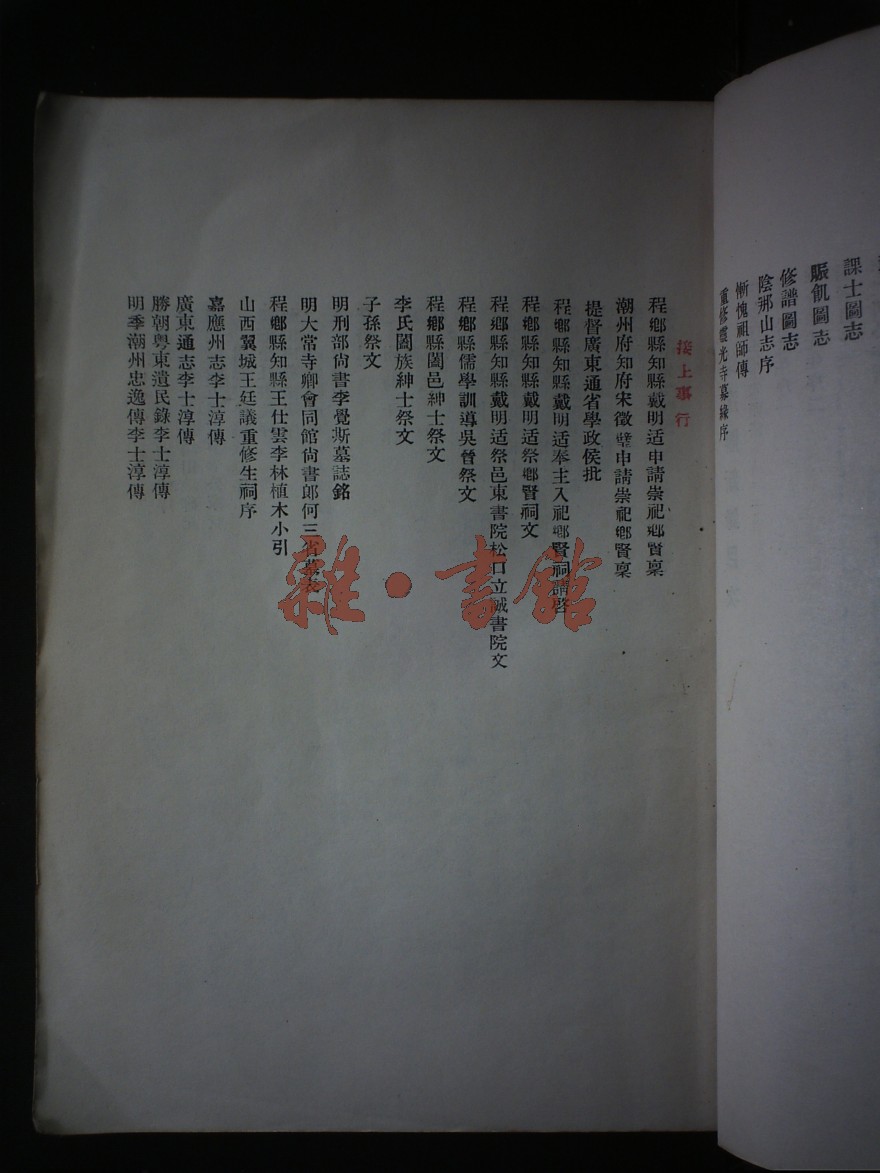 課士圖志
賑飢圖志
修譜圖志
陰那山志序
慚愧祖師傳
重修靈光寺募緣序
接上事行
程鄉縣知縣戴明适申請崇祀鄉賢稟
潮州府知府宋徵璧申請崇祀鄉賢稟
提督廣東通省學政侯批
程鄉縣知縣戴明适奉主入祀鄉賢祠請啓
程鄉縣知縣戴明适祭鄉賢祠文
程鄉縣知縣戴明适祭邑東書院松口立誠書院文
程鄉縣儒學訓導吳晉祭文
程鄉縣闔邑紳士祭文
李氏闔族紳士祭文
子孫祭文
明刑部尙書李覺斯墓誌銘
明大常寺卿會同館尙書郎何三省墓表
程鄉縣知縣王仕雲李林植木小引
山西翼城王廷議重修生祠序
嘉應州志李士淳傳
廣東通志李士淳傳
勝朝粤東遺民錄李士淳傳
明季潮州忠逸傳李士淳傳
雜·書館